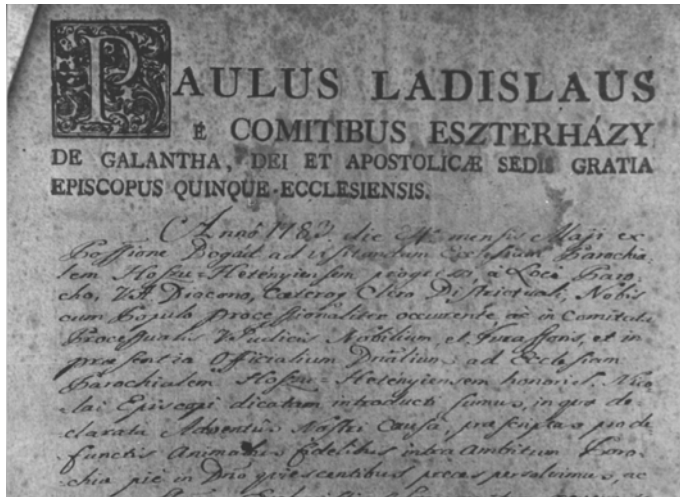 PAULUS LADISLAUS
È COMITIBUS ESZTERHÁZY
DE GALANTHA, DEI ET APOSTOLICÆ SEDIS GRATIA
EPISCOPUS QUINQUE-ECCLESIENSIS.
Anno 1783 die mensis Maji ex
Possione Bogád ad visitandum Ecclesiam Parochia-
lem Hoszu-Hetenyiensem progressi, à Loci Paro-
cho, V. A. Diacono, caetero Clero Districtuali, Nobis
cum Populo Processionaliter occurente ac in Comitatu
Processualis Judicis Nobilium et Jurassons, et in
praesentia Officialium Dnalium ad Ecclesiam
Parochialem Hoszu-Hetenyiensem honori S. Nico-
lai Episcopi dicatam introducti sumus, in qua de-
clarata Adventus Nostri Causa, praescriptas pro de-
functis Animabus fidelibus intra ambitum Paro-
chiae pie in Dno quiescentibus preces persolvimus, ac